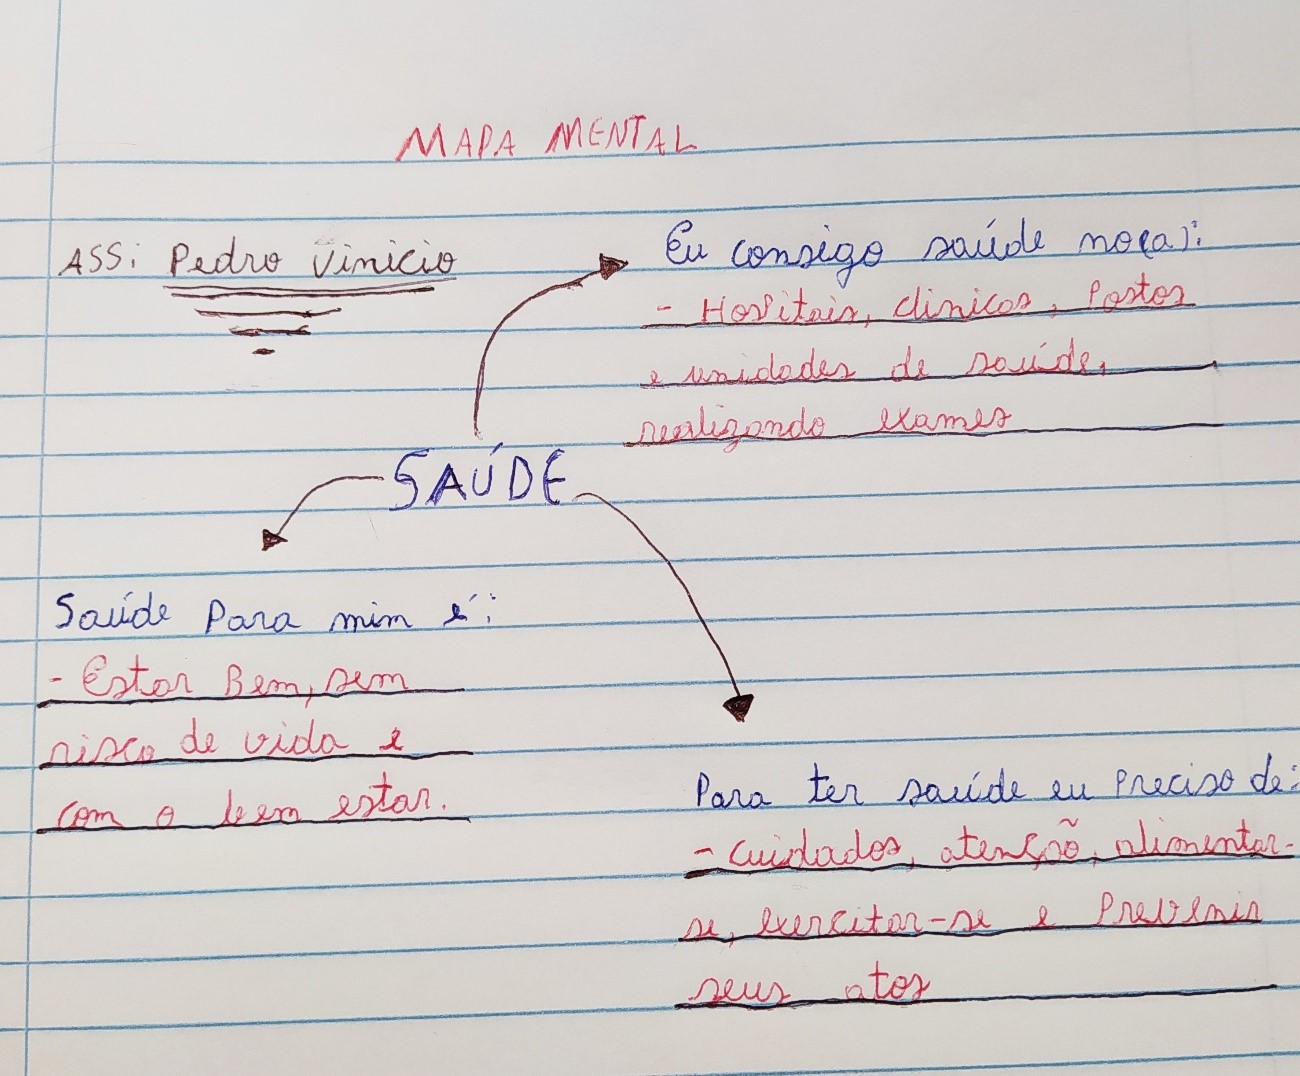 MAPA MENTAL
ASS: Pedro Vinicio
Eu consigo saúde no(a):
- Hospitais, clinicas, Postos
e unidades de saúde,
realizando exames
SAÚDE
Saúde Para mim é:
- Estar Bem, sem
risco de vida e
com o bem estar.
Para ter saúde eu Preciso de:
- cuidados, atenção, alimentar-
se, exercitar-se e Prevenir
seus atos